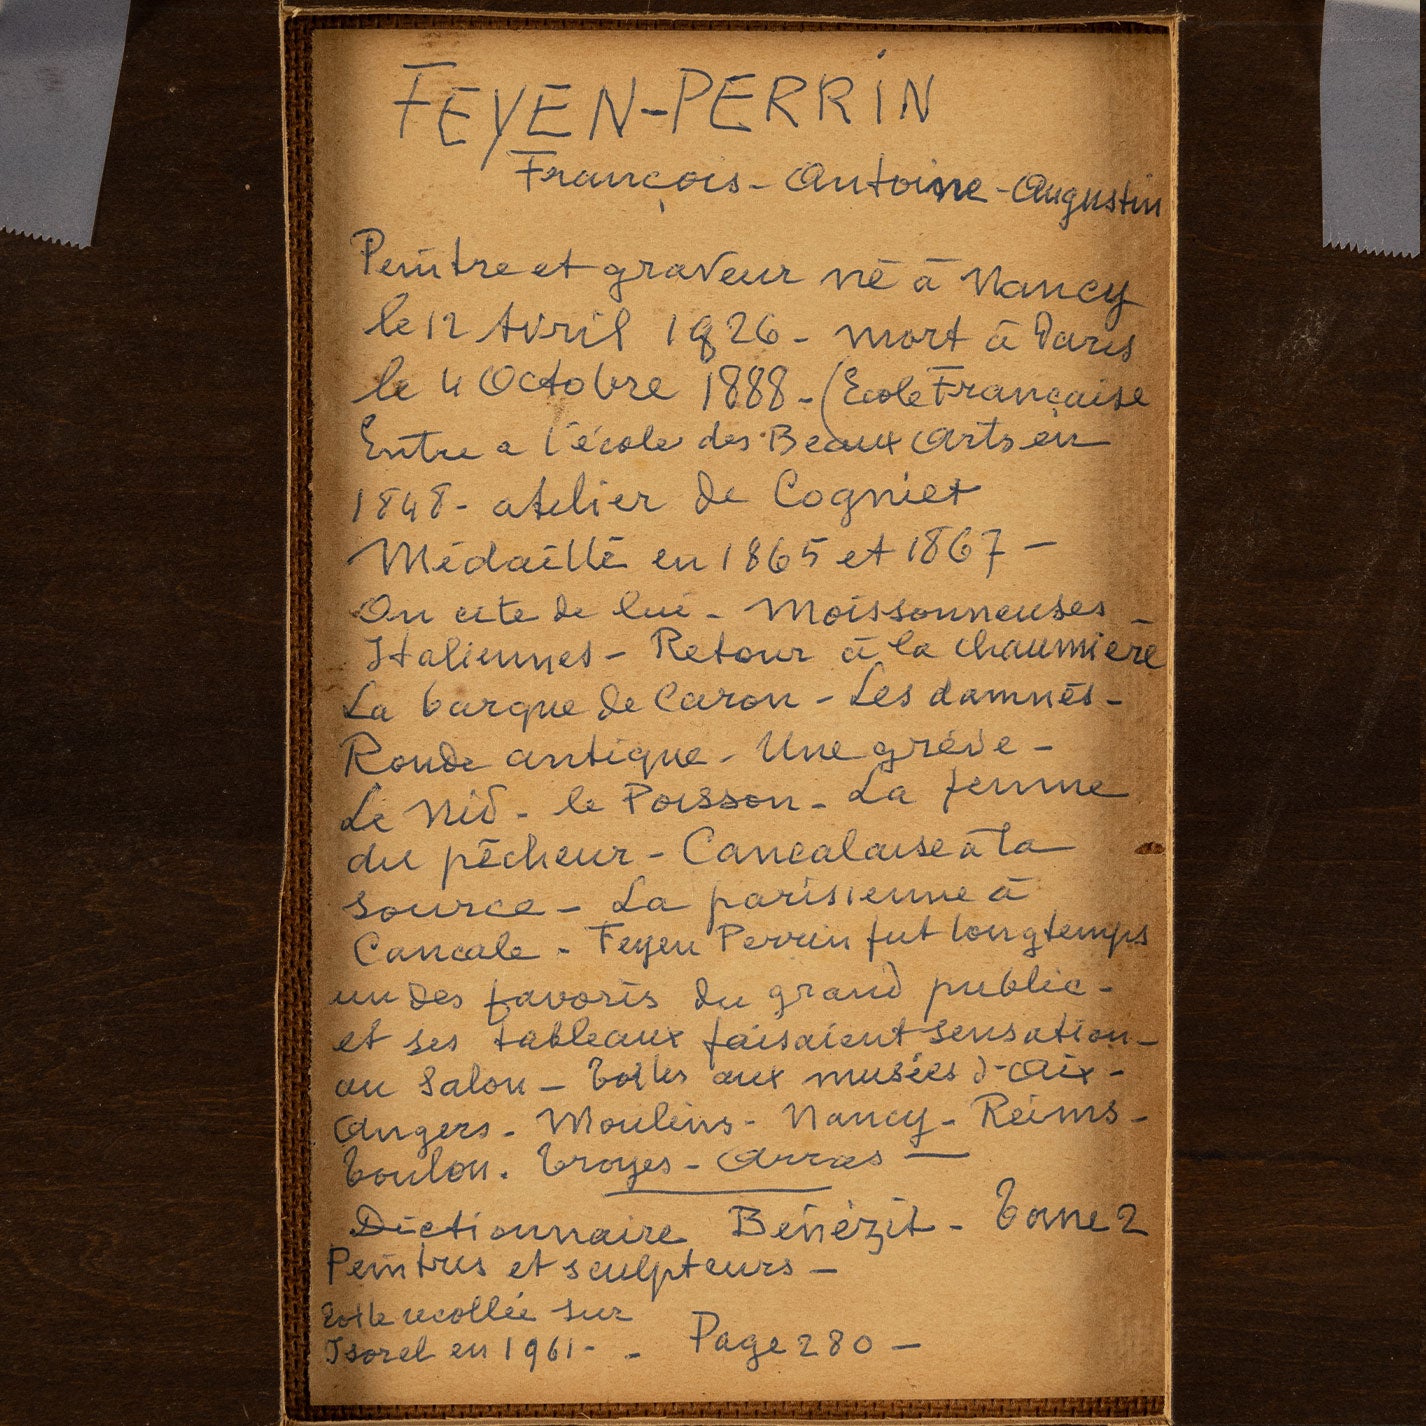 FEYEN-PERRIN
François-Antoine-Augustin
Peintre et graveur né à Nancy
le 12 Avril 1826 - mort à Paris
le 4 Octobre 1888 - (Ecole Française
Entre a l'école des Beaux Arts en
1848 - atelier de Cogniet
Médaillé en 1865 et 1867 -
On cite de lui - Moissonneuses -
Italiennes - Retour à la chaumière
La barque de Caron - Les damnés -
Ronde antique - Une grève -
Le Nid - le Poisson - La femme
du pêcheur - Cancalaise à la
source - La parisienne à
Cancale - Feyen Perrin fut longtemps
un des favoris du grand public -
et ses tableaux faisaient sensation -
au Salon - Toiles aux musées d'Aix -
Angers - Moulins - Nancy - Reims -
Toulon. Troyes - Arras -
Dictionnaire Bénézit - Tome 2
Peintres et sculpteurs -
Toile recollée sur
Isorel en 1961 - - Page 280 -